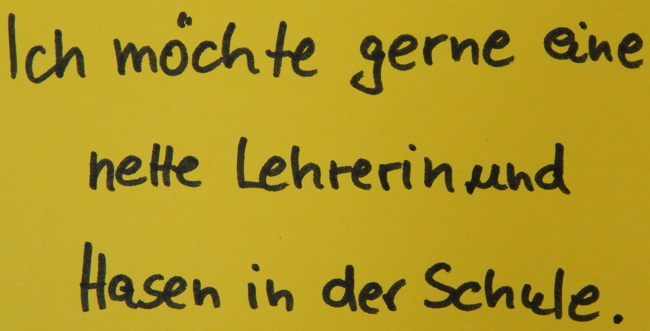 Ich möchte gerne eine
nette Lehrerin und
Hasen in der Schule.